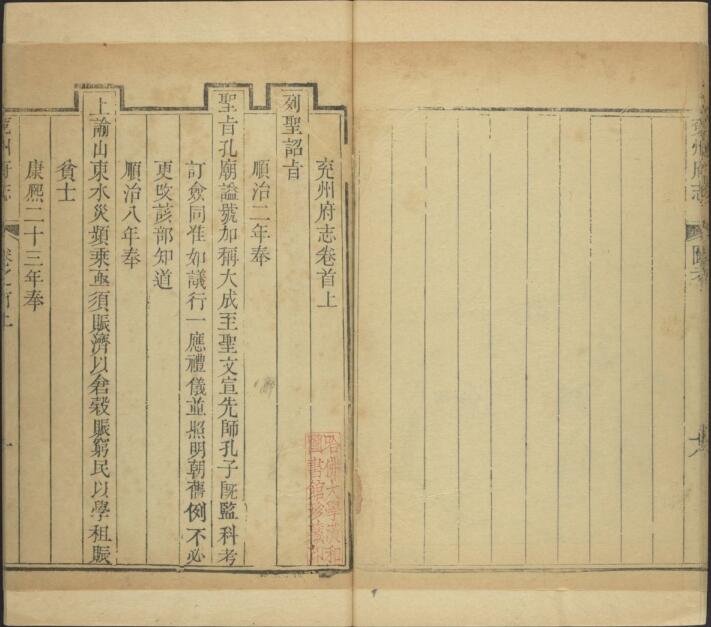 兖州府志卷首上
列聖詔旨
順治二年奉
聖旨孔廟謚號加稱大成至聖文宣先師孔子旣監科考
訂僉同准如議行一應禮儀並照明朝舊例不必
更改該部知道
順治八年奉
上諭山東水災頻乘亟須賑濟以倉穀賑窮民以學租賑
貧士
康熙二十三年奉
兖州府志
卷之首上
一
哈佛大學漢和
圖書館珍藏印
兖州府志
圖考